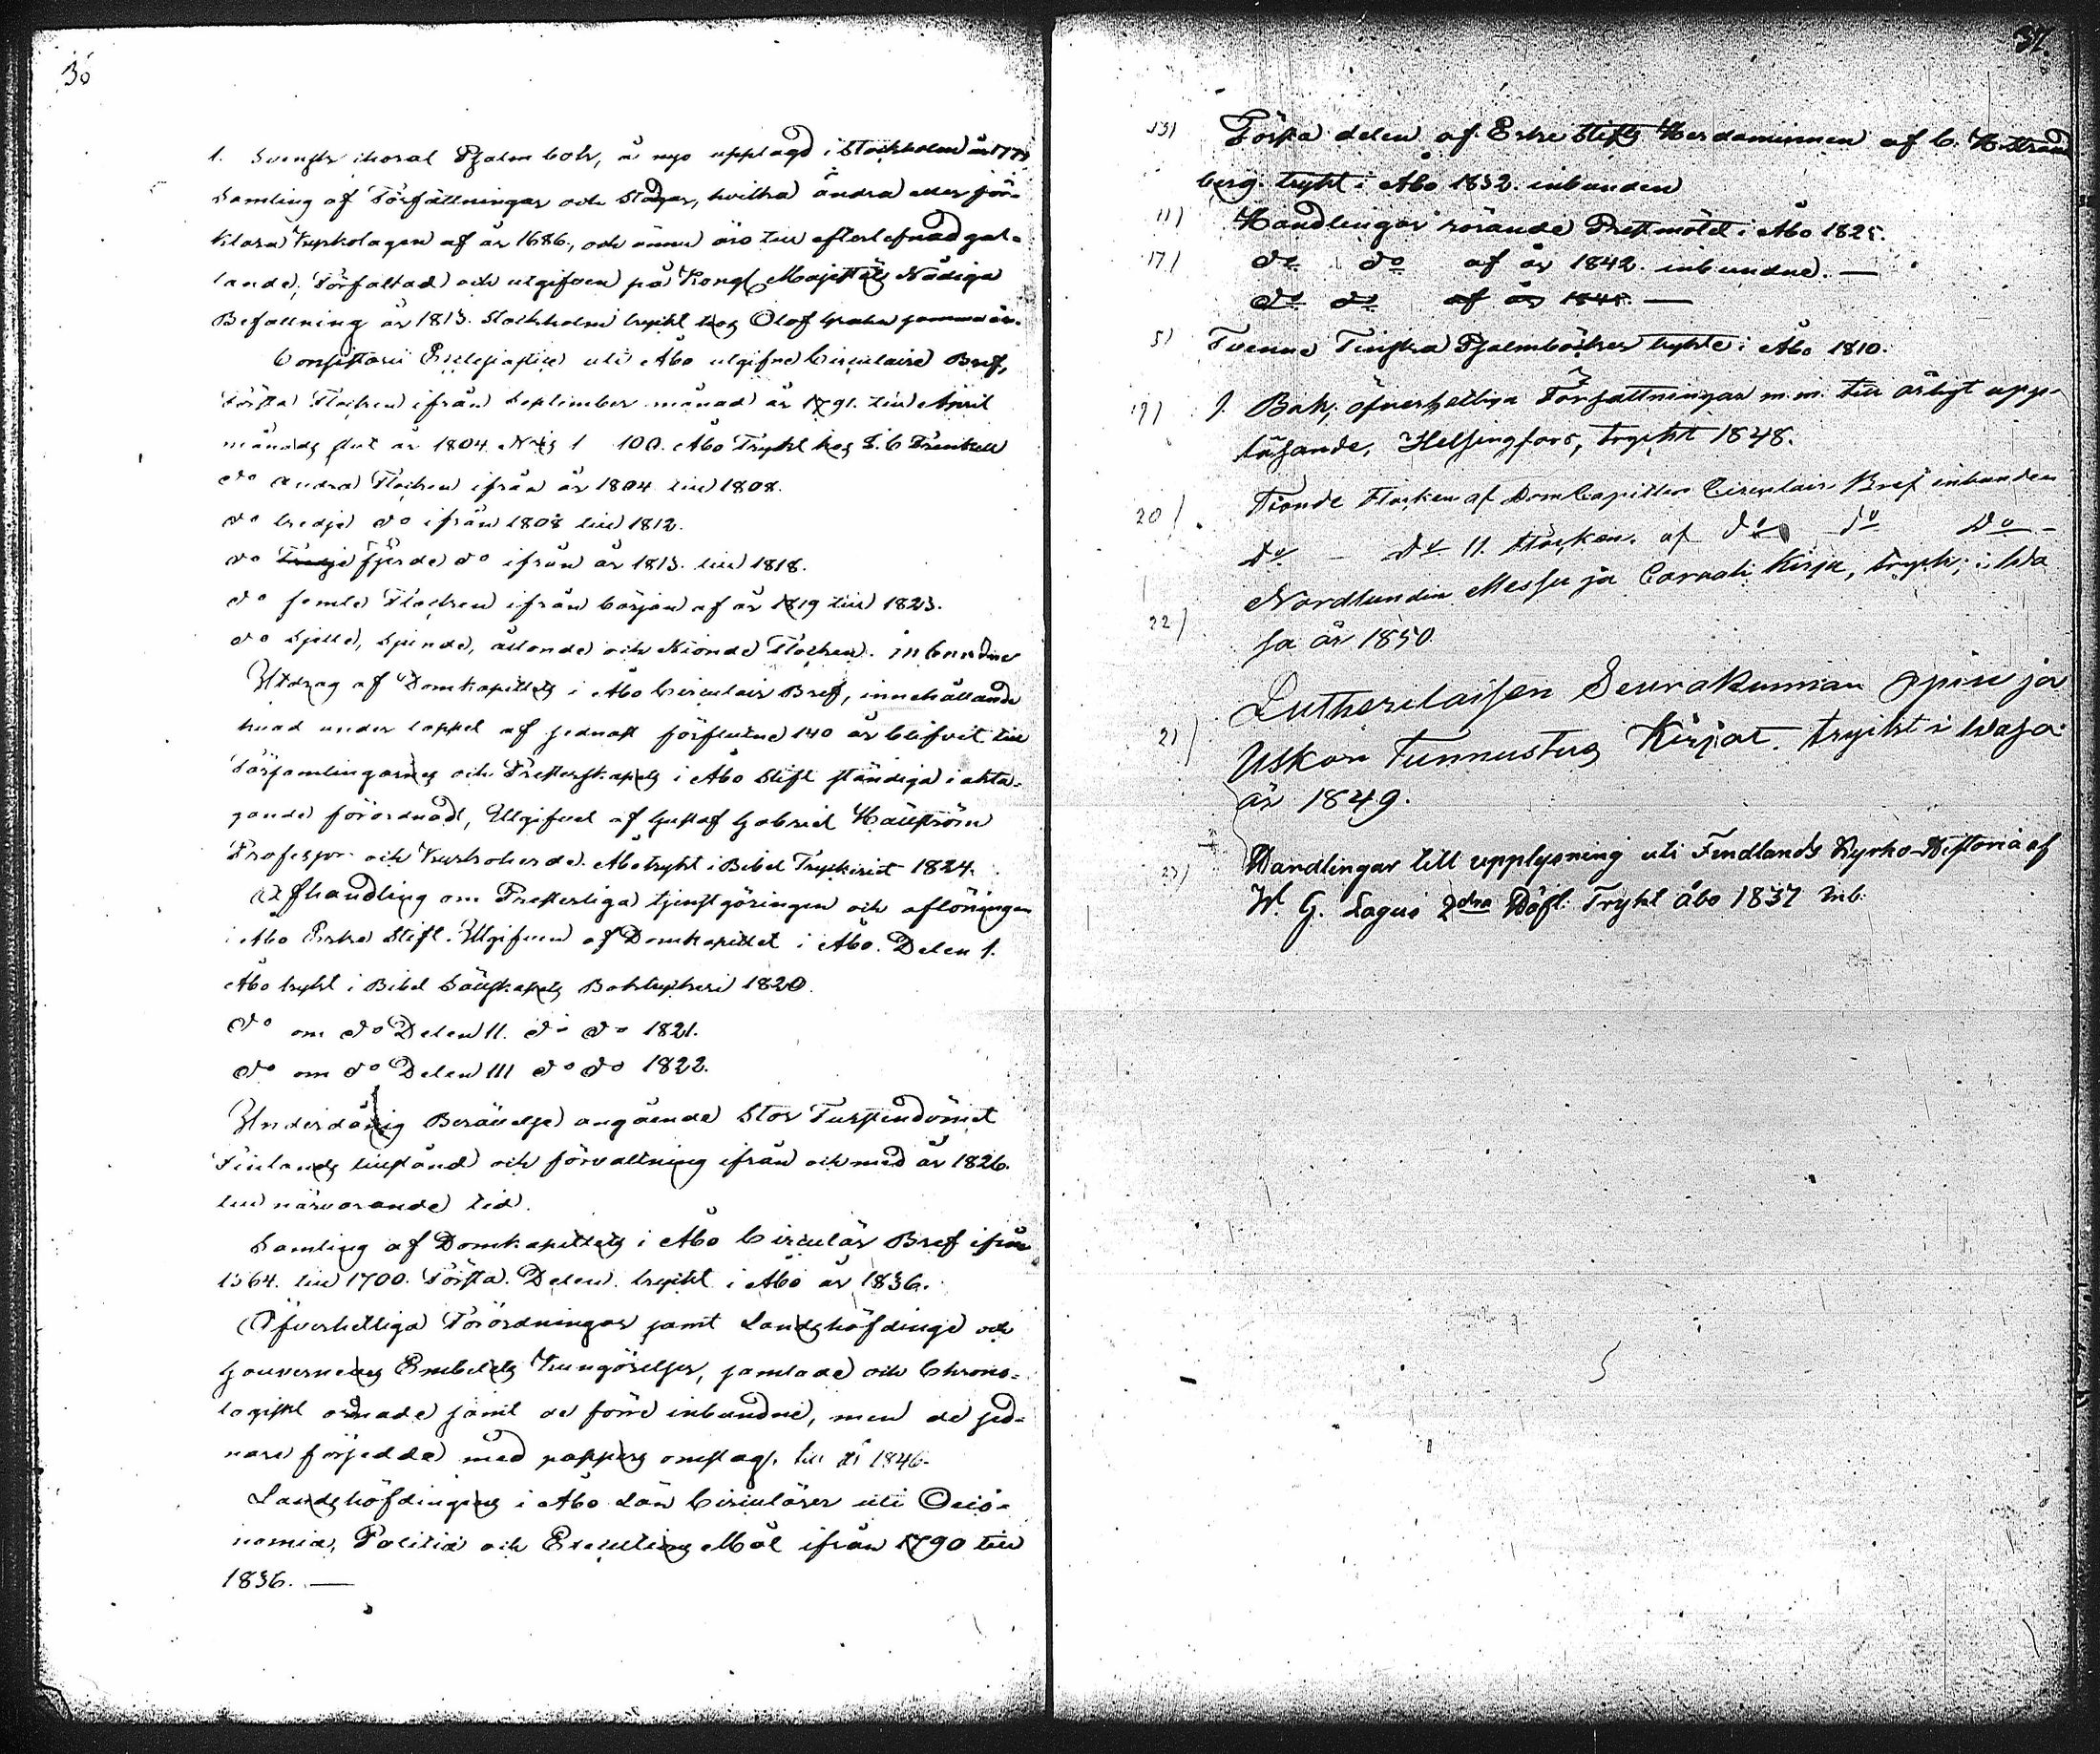 36
1. Svensk choral Psalm bok, å nyo upplagd i Stockholm år 177
Samling af Författningar och Stadgar, hvilka ändra eller för-
klara Kyrkolagen af år 1686, och ännu äro till efterlefnad gäl-
lande, Författad och utgifven på Kongl. Majestäts Nådiga
Befallning år 1813. Stockholm tryckt hos Olof Grahn samma år.
Consistorii Ecclesiastici uti Åbo utgifne Circulaire Bref,
Första Flocken ifrån September månad år 1791. till April
månads slut år 1804 N:is 1 100. Åbo Tryckt hos F. C. Frenckell
do Andra Flocken ifrån år 1804 till 1808.
do tredje do ifrån 1808 till 1812.
do fjerde do ifrån år 1813. till 1818.
do femte Flocken ifrån början af år 1819 till 1823.
do Sjette, Sjunde, åttonde och Nionde Flocken. inbundne
Utdrag af Domkapitlets i Åbo Circulair Bref, innehållande
hvad under loppet af sednast förflutne 140 år blifvit till
Församlingarnes och Presterskapets i Åbo Stift ständiga iakta-
gande förordnadt, Utgifvet af Gustaf Gabriel Hällström
Professor och Kyrkoherde. Åbo tryckt i Bibel Tryckeriet 1824.
Afhandling om Presterliga tjenstgöringen och aflöningen
i Åbo Erke Stift. Utgifven af Domkapitlet i Åbo. Delen 1.
Åbo tryckt i Bibel Sällskapets Boktryckeri 1820.
do om do Delen 11. do do 1821.
do om do Delen 111 do do 1822.
Underdånig Berättelse angående Stor Furstendömet
Finlands tillstånd och förvaltning ifrån och med år 1826.
till närvarande tid.
Samling af Domkapitlets i Åbo Circulär Bref ifrån
1564. till 1700. Första Delen. tryckt i Åbo år 1836.
Öfverhetliga Förordningar samt Landshöfdinge och
Gouverneurs Embetets Kungörelser, samlade och Chrono-
logiskt ordnade samt de förre inbundne, men de sed-
nare försedde med pappers omslag. till år 1846.
Landshöfdingens i Åbo Län Circulärer uti Oeco-
nomia, Politia och Executions Mål ifrån 1790 till
1836. —
37.
13) Första delen af Erke Stifts Herdaminnen af C. H. Strand
berg. tryckt i Åbo 1832. inbunden
11) Handlingar rörande Prestmötet i Åbo 1825.
17) do do af år 1842. inbundne. —
do do af år 1848. —
5) Tvenne Finska Psalmböcker tryckte i Åbo 1810.
19) 1. Bok, öfverhetliga Författningar m.m. till årligt upp-
läsande, Helsingfors, tryckt 1848.
20) Tionde Flocken af DomCapitlets Circulair Bref inbunden
do - do 11. Flocken. af do do do -
22) Nordlundin Messu ja Coraali Kirja, tryckt i Wa
sa år 1850.
21) Lutherilaisen Seurakunnan Opin ja
Uskon Tunnustus Kirjat. tryckt i Wasa
år 1849.
23) Handlingar till upplysning uti Findlands Kyrko-Historia af
W. G. Lagus 2dra Häft. Tryckt Åbo 1837 inb.